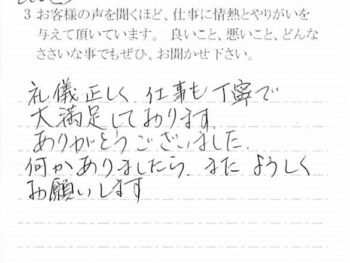 3 お客様の声を聞くほど、仕事に情熱とやりがいを
与えて頂いています。 良いこと、悪いこと、どんな
ささいな事でもぜひ、お聞かせ下さい。
礼儀正しく 仕事も丁寧で
大満足しております
ありがとうございました
何かありましたら また ようしく
お願いします